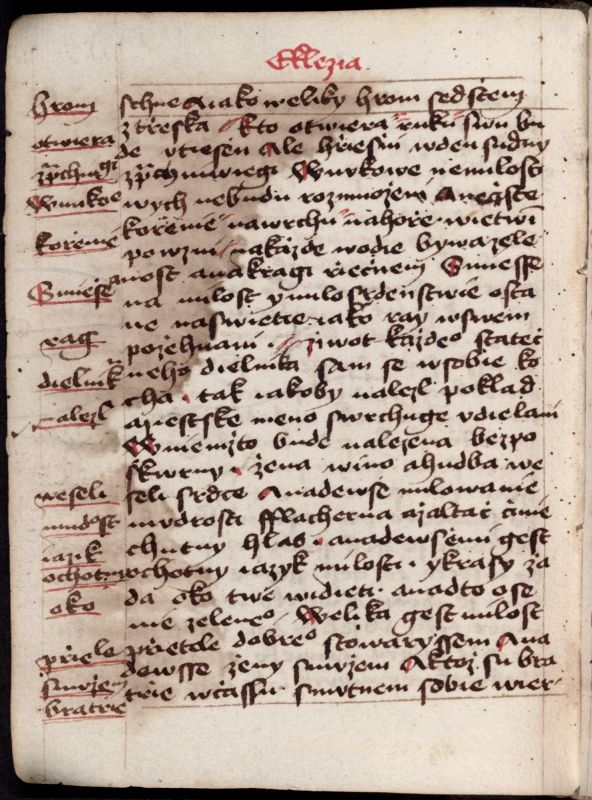 Ekklezia
hrom
otwiera
Wnukoe
korenie
Sniesse
rag
dielnik
nalezl
weseli
mudost
iazik
ochotny
oko
priete
smrzem
bratrie
schne A iako weliky hrom sedstem
ztřeska kto otwiera ruku swu bu
de vtiesen Ale hriesni wden sudny
Wnukowe nemilosti
wych nebudu rozmnozeni A neciste
korenie nawrchu nahore wietwi
powzni nakazde wodie bywa zele
nost anakragi riecnem Sniesse
na milost y milosrdenstwie osta
ne naswietie iako ray wswem
pozehnani ziwot kazdeo statec
neho dielnika sam se wsobie ko
cha tak iakoby nalezl poklad
miestske meno swrchuge vdielani
Wniemzto bude nalezena bezpo
skwrny zena wino ahudba we
seli srdce A nadewse milowanie
mudrosti fflacherna azaltar cinie
chutny hlas anadewsemi gest
ochotny iazyk milosti ykrasy za
da oko twe widieti anadto ose
nie zeleneo Welika gest milost
prietele dobreo stowaryssem A na
dewsse zeny smrzem A ktoz su bra
trie wcassu smutnem sobie wier